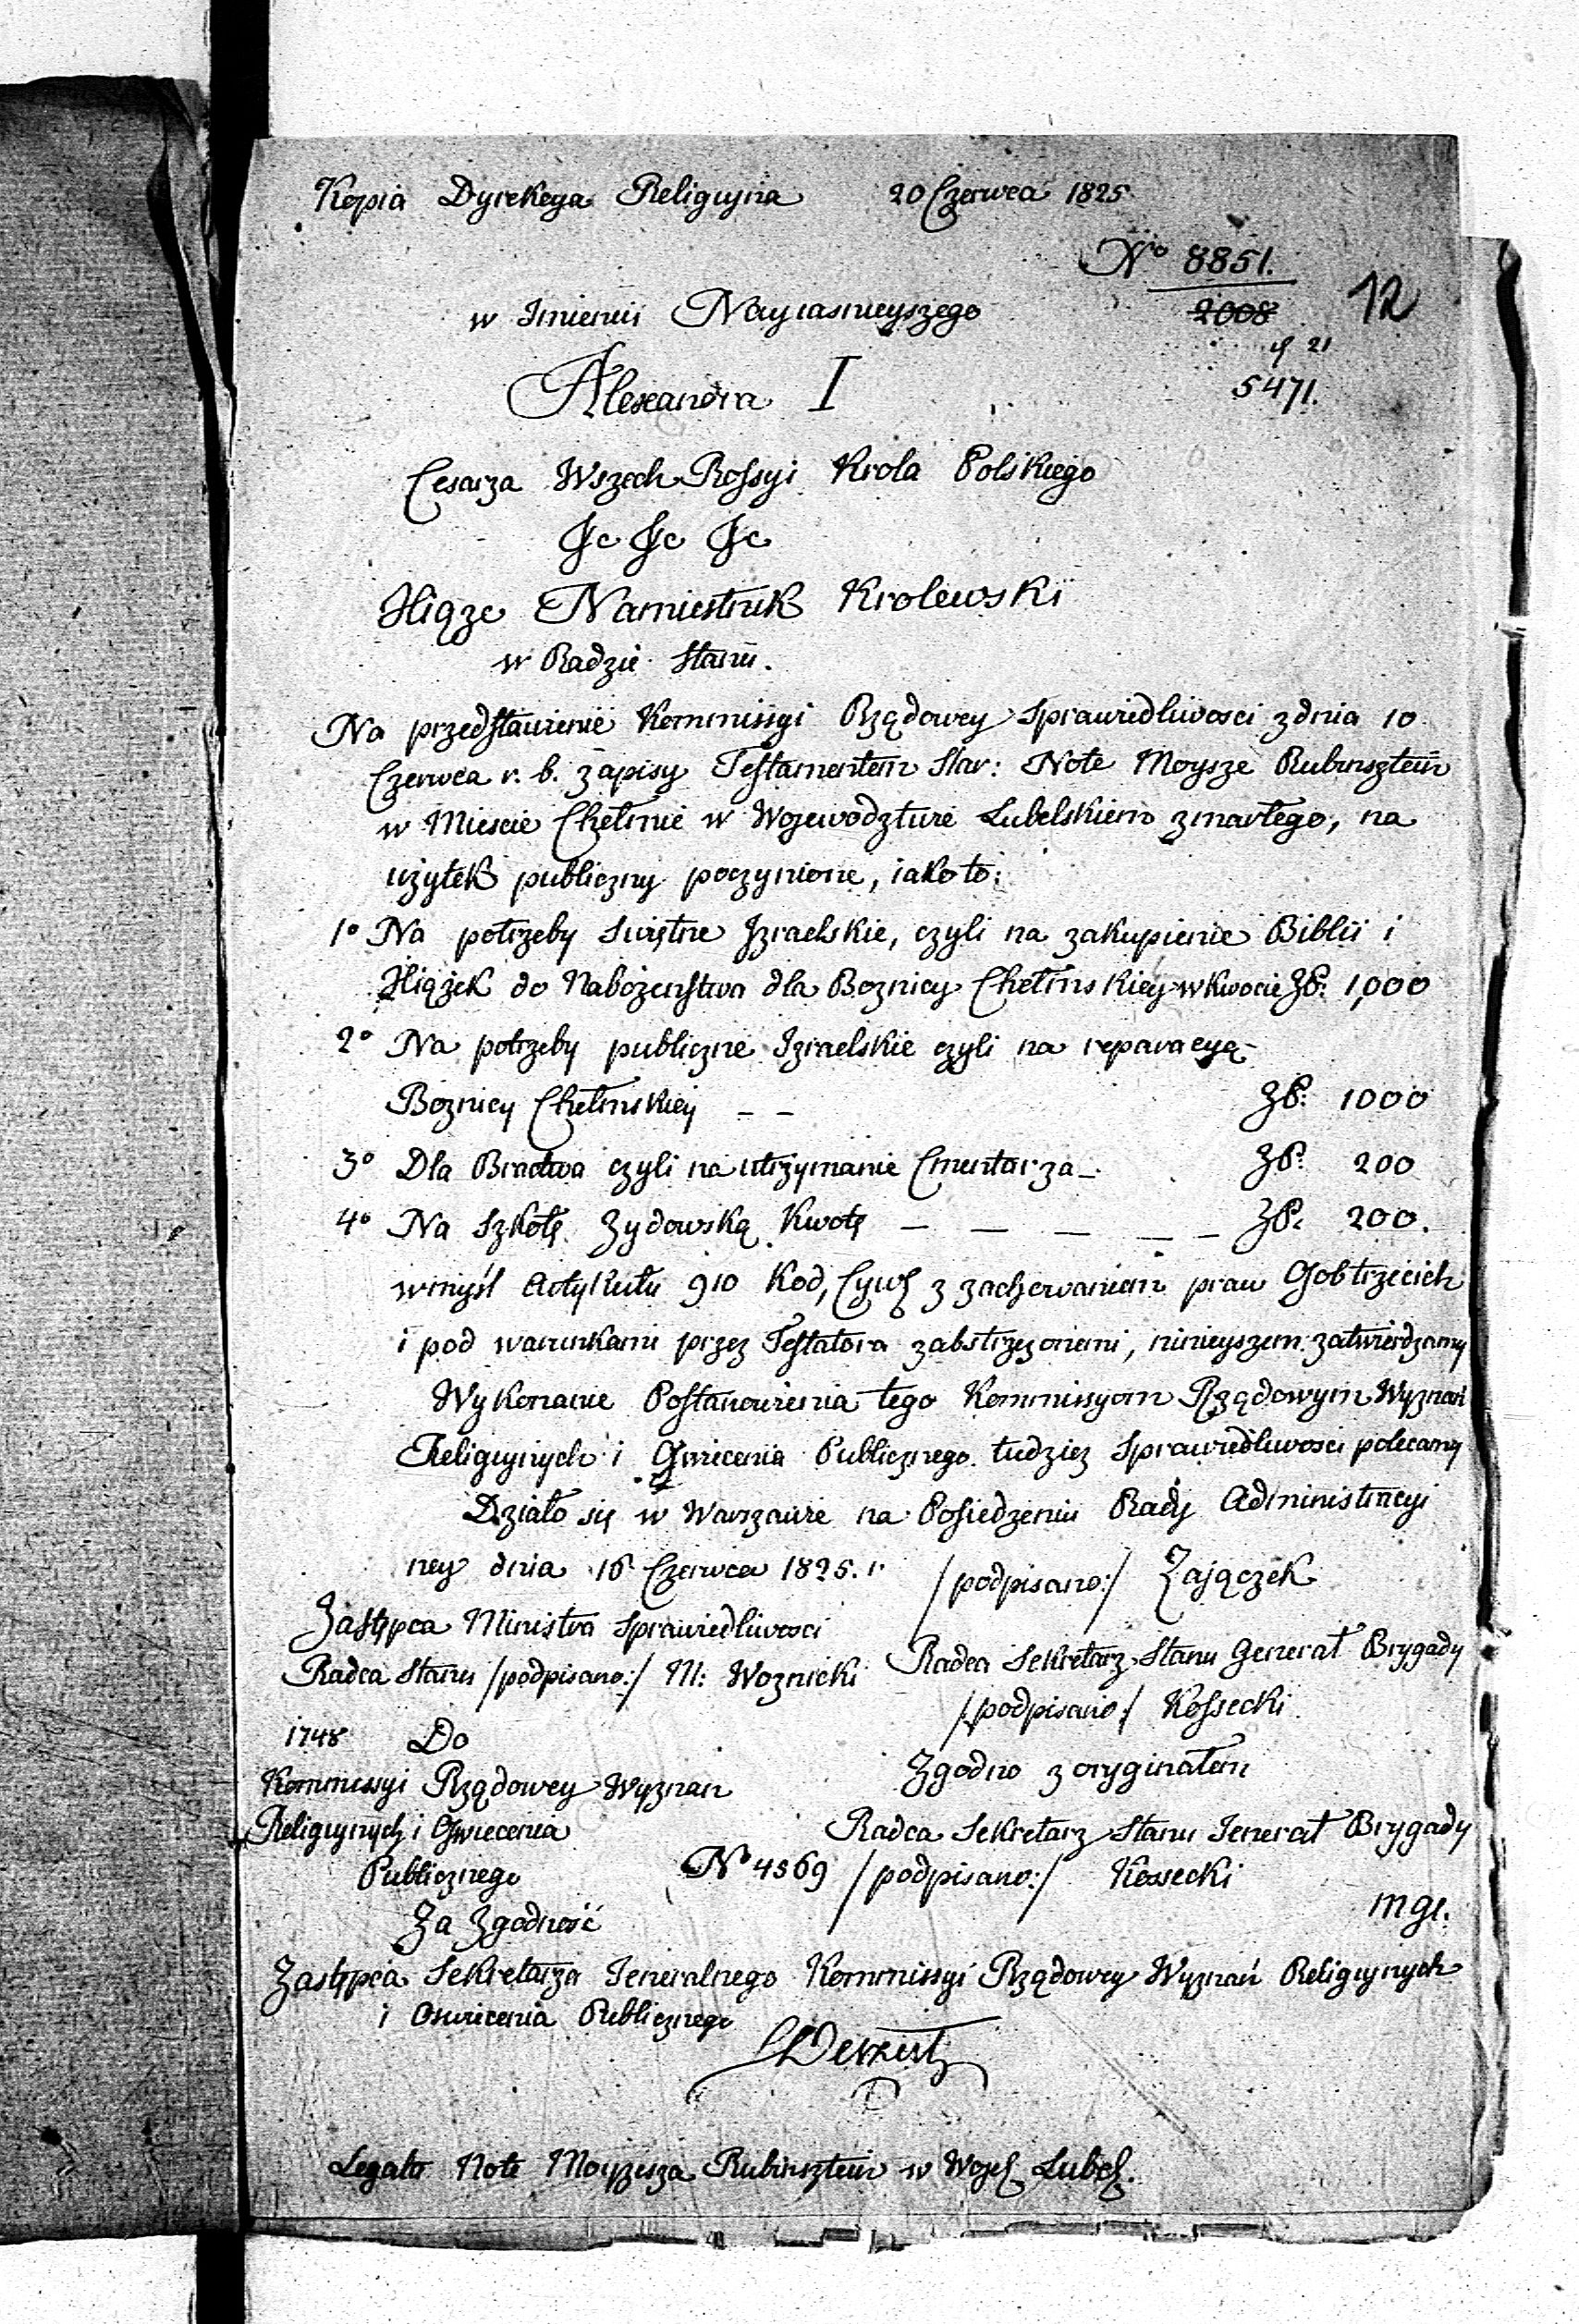 Kopia Dyrekcya Religiyna 20 Czerwca 1825
No 8851.
2008
12
21
5471.
w Imieniu Nayiasnieyszego
Alexandra I
Cesarza Wszech Rossyi Krola Polskiego
&c &c &c
Xiąże Namiestnik Krolewski
w Radzie Stanu.
Na przedstawienie Kommissyi Rządowey Sprawiedliwosci z dnia 10
Czerwca r. b. zapisy Testamentem Star: Note Moysze Rubinsztein
w Miescie Chełmie w Wojewodztwie Lubelskiem zmarłego, na
użytek publiczny poczynione, iako to:
1o Na potrzeby Swiętne Izraelskie, czyli na zakupienie Biblii i
Xiążek do Nabożenstwa dla Boznicy Chełmskiey w kwocie ZP: 1,000
2o Na potrzeby publiczne Izraelskie czyli na reparacyą
Boznicy Chełmskiey – – ZP: 1000
3o Dla Bractwa czyli na utrzymanie Cmentarza – ZP: 200
4o Na Szkołę Zydowską Kwotę – – – – – ZP: 200.
w myśl Artykułu 910 Kod, Cyw z zachowaniem praw Osob trzecich
i pod warunkami przez Testatora zabstrzezonemi, ninieyszem zatwierdzamy
Wykonanie Postanowienia tego Kommissyom Rządowym Wyznań
Religiynych i Oswiecenia Publicznego tudziez Sprawiedliwosci polecamy
Działo się w Warszawie na Posiedzeniu Rady Administracyi
ney dnia 16 Czerwca 1825. r. /podpisano:/ Zajączek
Zastępca Ministra Sprawiedliwosci
Radca Stanu /podpisano:/ M: Woznicki
Radca Sekretarz Stanu Generał Brygady
/podpisano/ Kossecki
1748 Do
Kommissyi Rządowey Wyznan
Religiynych i Oswiecenia
Publicznego
Zgodno z oryginałem
Radca Sekretarz Stanu Jenerał Brygady
No 4569 /podpisano:/ Kossecki
mgr.
Za Zgodność
Zastępca Sekretarza Jeneralnego Kommissyi Rządowey Wyznań Religiynych
i Oswiecenia Publicznego
Legata Note Moyzesza Rubinsztein w Wojew Lubel.